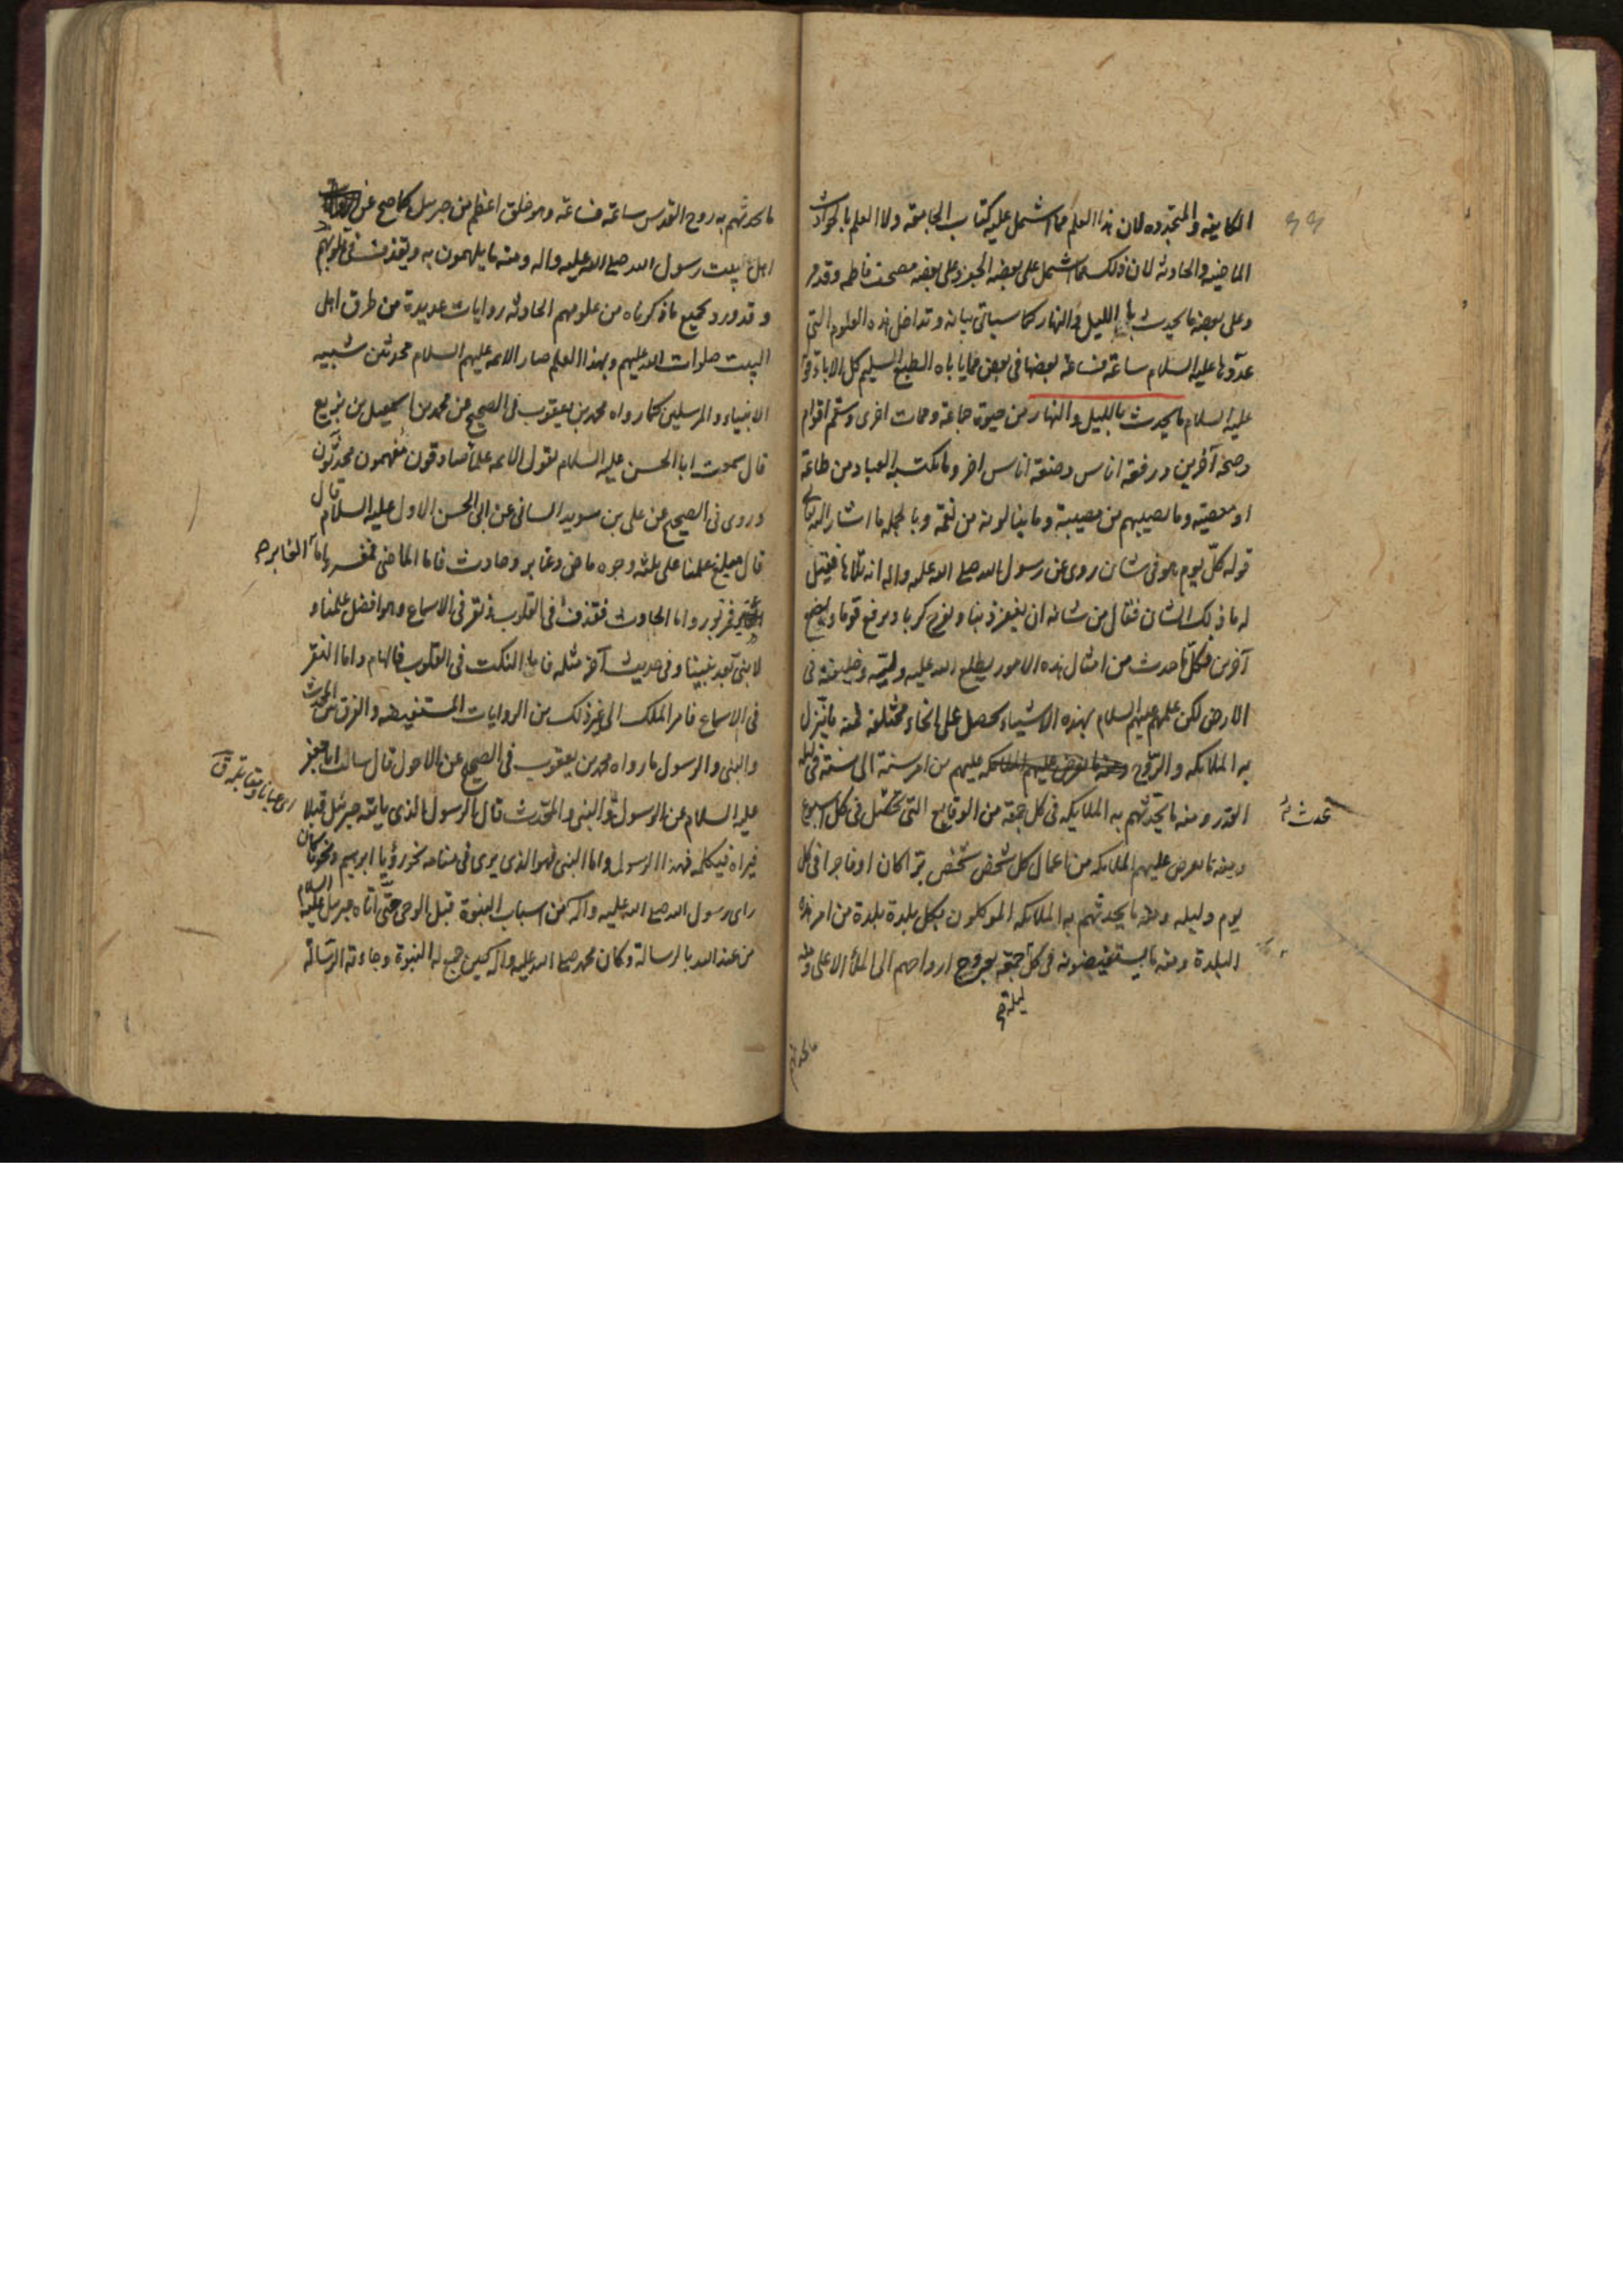 الكاينة والمتجدده لان هذا العلم مما اشتمل عليه كتاب الجامعة ولا العلم بالحوادث
الماضيه والحادثه لان ذلك مما اشتمل على بعضه الجفر وعلى بعضه مصحف فاطمه وقد مر
وعلى بعضه ما يحدث بالليل والنهار كما سياتى بيانه وتداخل هذه العلوم التى
عدّوها عليه السلام ساعة فساعة بعضها فى بعض مما ياباه الطبع السليم كل الاباء
عليه السلام ما يحدث بالليل والنهار من حيوة جماعة وممات اخرى وسقم اقوام
وصحة آخرين ورفعة اناس وضعة اناس اخر وما يكتسبه العباد من طاعة
او معصية وما يصيبهم من مصيبة وما ينالونه من نعمة وبالجمله ما اشار اليه
قوله كلّ يوم هو فى شان روى عن رسول الله صلى الله عليه واله انه تلاها فقيل
له ما ذلك الشان فقال من شانه ان يغفر ذنبا ويفرج كربا ويرفع قوما ويضع
آخرين فكلّ ما حدث من امثال هذه الامور يطلع الله عليه وليّه وخليفته فى
الارض لكن علمهم عليهم السلام بهذه الاشياء يحصل على انحاء مختلفة فمنه ما يتنزل
به الملائكه والرّوح عليهم من امر سنة الى سنة فى ليلة
القدر ومنه ما يحدّثهم به الملايكه فى كل جمعة من الوقايع التى فى كل اسبوع
ومنه ما يعرض عليهم الملائكه من اعمال كل شخص شخص برّا كان او فاجرا فى كل
يوم وليله ومنه ما يحدثهم به الملائكه الموكلون بكل بلدة بلدة من امر هذه
البلدة ومنه ما يستفيضونه فى كل جمعة بعروج ارواحهم الى الملأ الاعلى ومنه
ليلة
ما يحدثهم
ما يحدثهم به روح القدس ساعة فساعة وهو خلق اعظم من جبرئيل كما صح عن
اهل بيت رسول الله صلى الله عليه واله ومنه ما يلهمون به ويقذف فى قلوبهم
وقد ورد بجميع ما ذكرناه من علومهم الحادثه روايات عديدة من طرق اهل
البيت صلوات الله عليهم وبهذا العلم صار الائمه عليهم السلام محدثين شبيه
الانبياء والمرسلين كما رواه محمد بن يعقوب فى الصحيح عن محمد بن اسمعيل بن بزيع
قال سمعت ابا الحسن عليه السلام يقول الائمه علماء صادقون مفهمون محدّثون
وروى فى الصحيح عن على بن سويد السائى عن ابى الحسن الاول عليه السلام قال
قال مبلغ علمنا على ثلثة وجوه ماض وغابر وحادث فاما الماضى فمفسر واما الغابر
فمزبور واما الحادث فقذف فى القلوب ونقر فى الاسماع وهو افضل علمنا و
لا نبى بعد نبينا وفى حديث آخر مثله فاما النكت فى القلوب فالهام واما النقر
فى الاسماع فامر الملك الى غير ذلك من الروايات المستفيضه والفرق بين المحدث
والنبى والرسول ما رواه محمد بن يعقوب فى الصحيح عن الاحول قال سالت ابا جعفر
عليه السلام عن الرسول والنبى والمحدث قال الرسول الذى ياتيه جبرئيل قبلا
اى عيانا ومقابلة ق
فيراه فيكلمه فهذا الرسول واما النبى فهو الذى يرى فى منامه نحو رؤيا ابرهيم ونحو ما كان
راى رسول الله صلى الله عليه واله من اسباب النبوة قبل الوحى حتّى اتاه جبرئيل عليه السلام
من عند الله بالرسالة وكان محمد صلى الله عليه واله حين جمع له النبوة وجاءته الرسالة